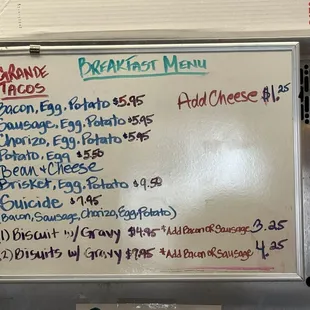 GRANDE TACOS
BREAKFAST MENU
Bacon, Egg, Potato $5.95
Add Cheese $1.25
Sausage, Egg, Potato $5.95
Chorizo, Egg, Potato $5.95
Potato, Egg $5.50
Bean & Cheese
Brisket, Egg, Potato $9.50
Suicide $7.95
(Bacon, Sausage, Chorizo, Egg, Potato)
(1) Biscuit w/ Gravy $4.95 *Add Bacon or Sausage 3.25
(2) Bisuits w/ Gravy $7.95 *Add Bacon or Sausage 4.25